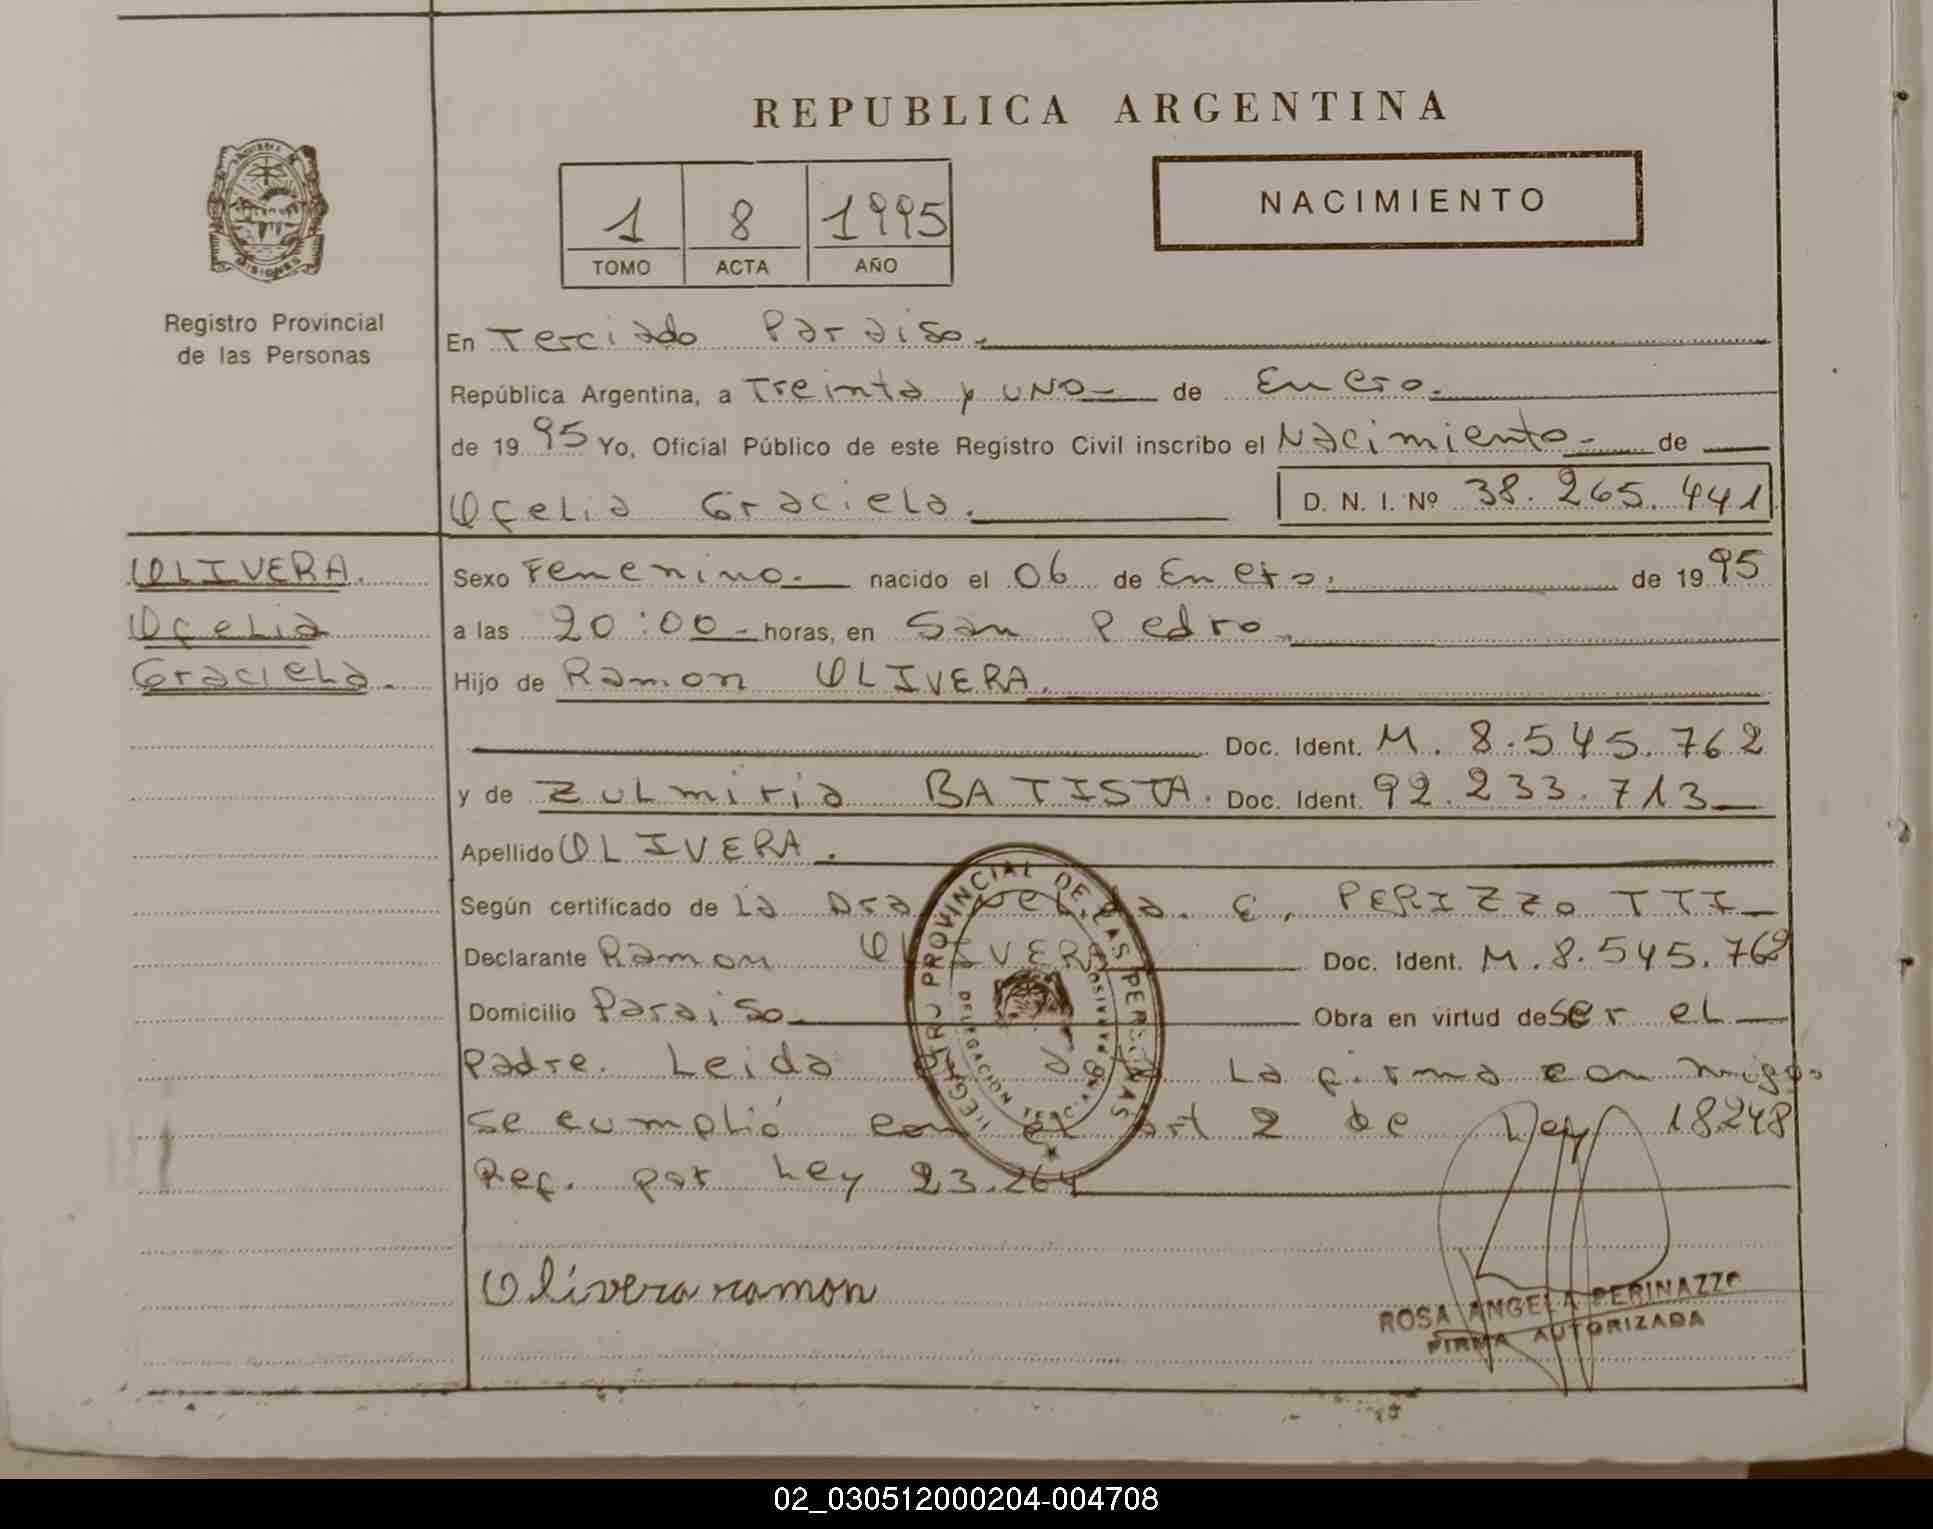 REPUBLICA ARGENTINA
MISIONES
Registro Provincial
de las Personas
1 8 1995
TOMO ACTA AÑO
NACIMIENTO
En Terciado Paraiso.
República Argentina, a Treinta y uno de Enero.
de 1995 Yo, Oficial Público de este Registro Civil inscribo el Nacimiento de
Ofelia Graciela. D. N. I. Nº 38.265.441
OLIVERA.
Ofelia
Graciela.
Sexo Femenino. nacido el 06 de Enero. de 1995
a las 20:00 horas, en San Pedro.
Hijo de Ramon OLIVERA.
Doc. Ident. M. 8.545.762
y de Zulmiria BATISTA. Doc. Ident. 92.233.713
Apellido OLIVERA.
Según certificado de La Dra E. PERIZZOTTI
Declarante Ramon OLIVERA Doc. Ident. M. 8.545.762
Domicilio Paraiso Obra en virtud de ser el
padre. Leida La firma conmigo.
Se cumplió con el art 2 de Ley 18248
Ref. por Ley 23.264
REGISTRO PROVINCIAL DE LAS PERSONAS
DELEGACION TERC. PARAISO
Olivera ramon
ROSA ANGELA PERINAZZO
FIRMA AUTORIZADA
02_030512000204-004708